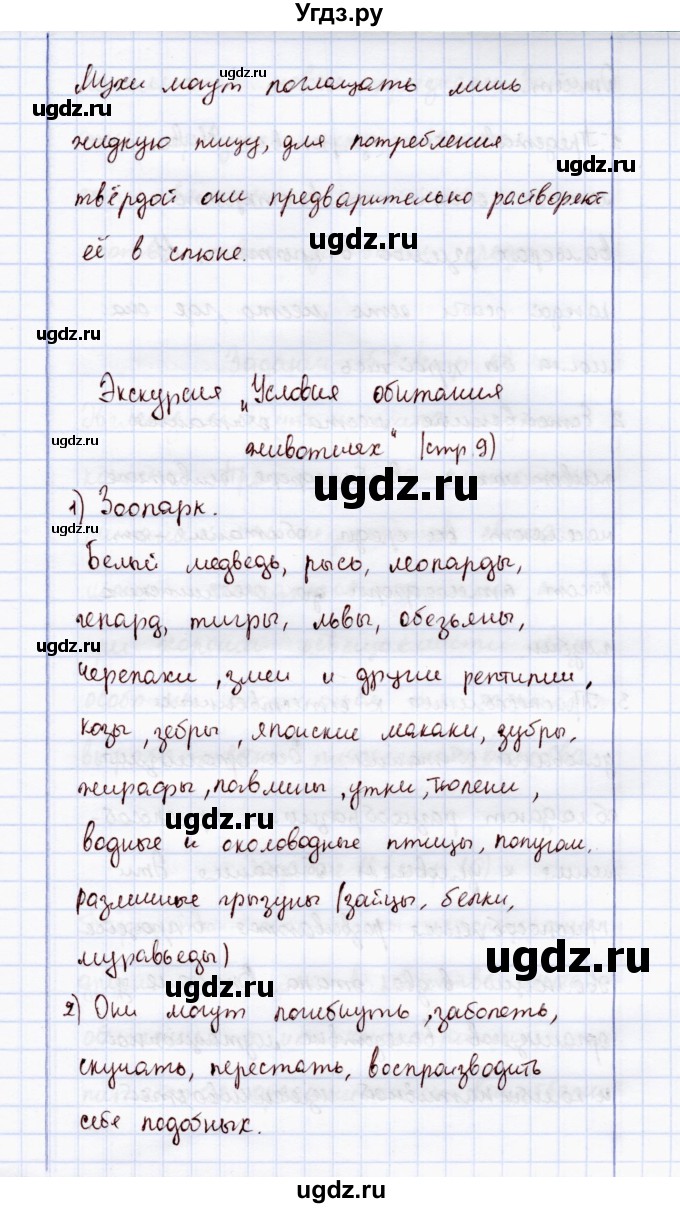 Угдз.ру
Мухи могут поглощать лишь
жидкую пищу, для потребления
твёрдой они предварительно растворяют
её в слюне.
Экскурсия „Условия обитания
животных“ (стр 9)
1) Зоопарк.
Белый медведь, рысь, леопарды,
гепард, тигры, львы, обезьяны,
черепахи, змеи и другии рептилии,
козы, зебры, японские макаки, зубры,
жирафы, павлины, утки, тюлени,
водные и околоводные птицы, попугаи.
различные грызуны (зайцы, белки,
муравьеды)
2) Они могут погибнуть, заболеть,
скучать, перестать, воспроизводить
себе подобных.
ugdz.ru
ugdz.ru
ugdz.ru
ugdz.ru
ugdz.ru
ugdz.ru
ugdz.ru
ugdz.ru
ugdz.ru
ugdz.ru
ugdz.ru
ugdz.ru
ugdz.ru
ugdz.ru